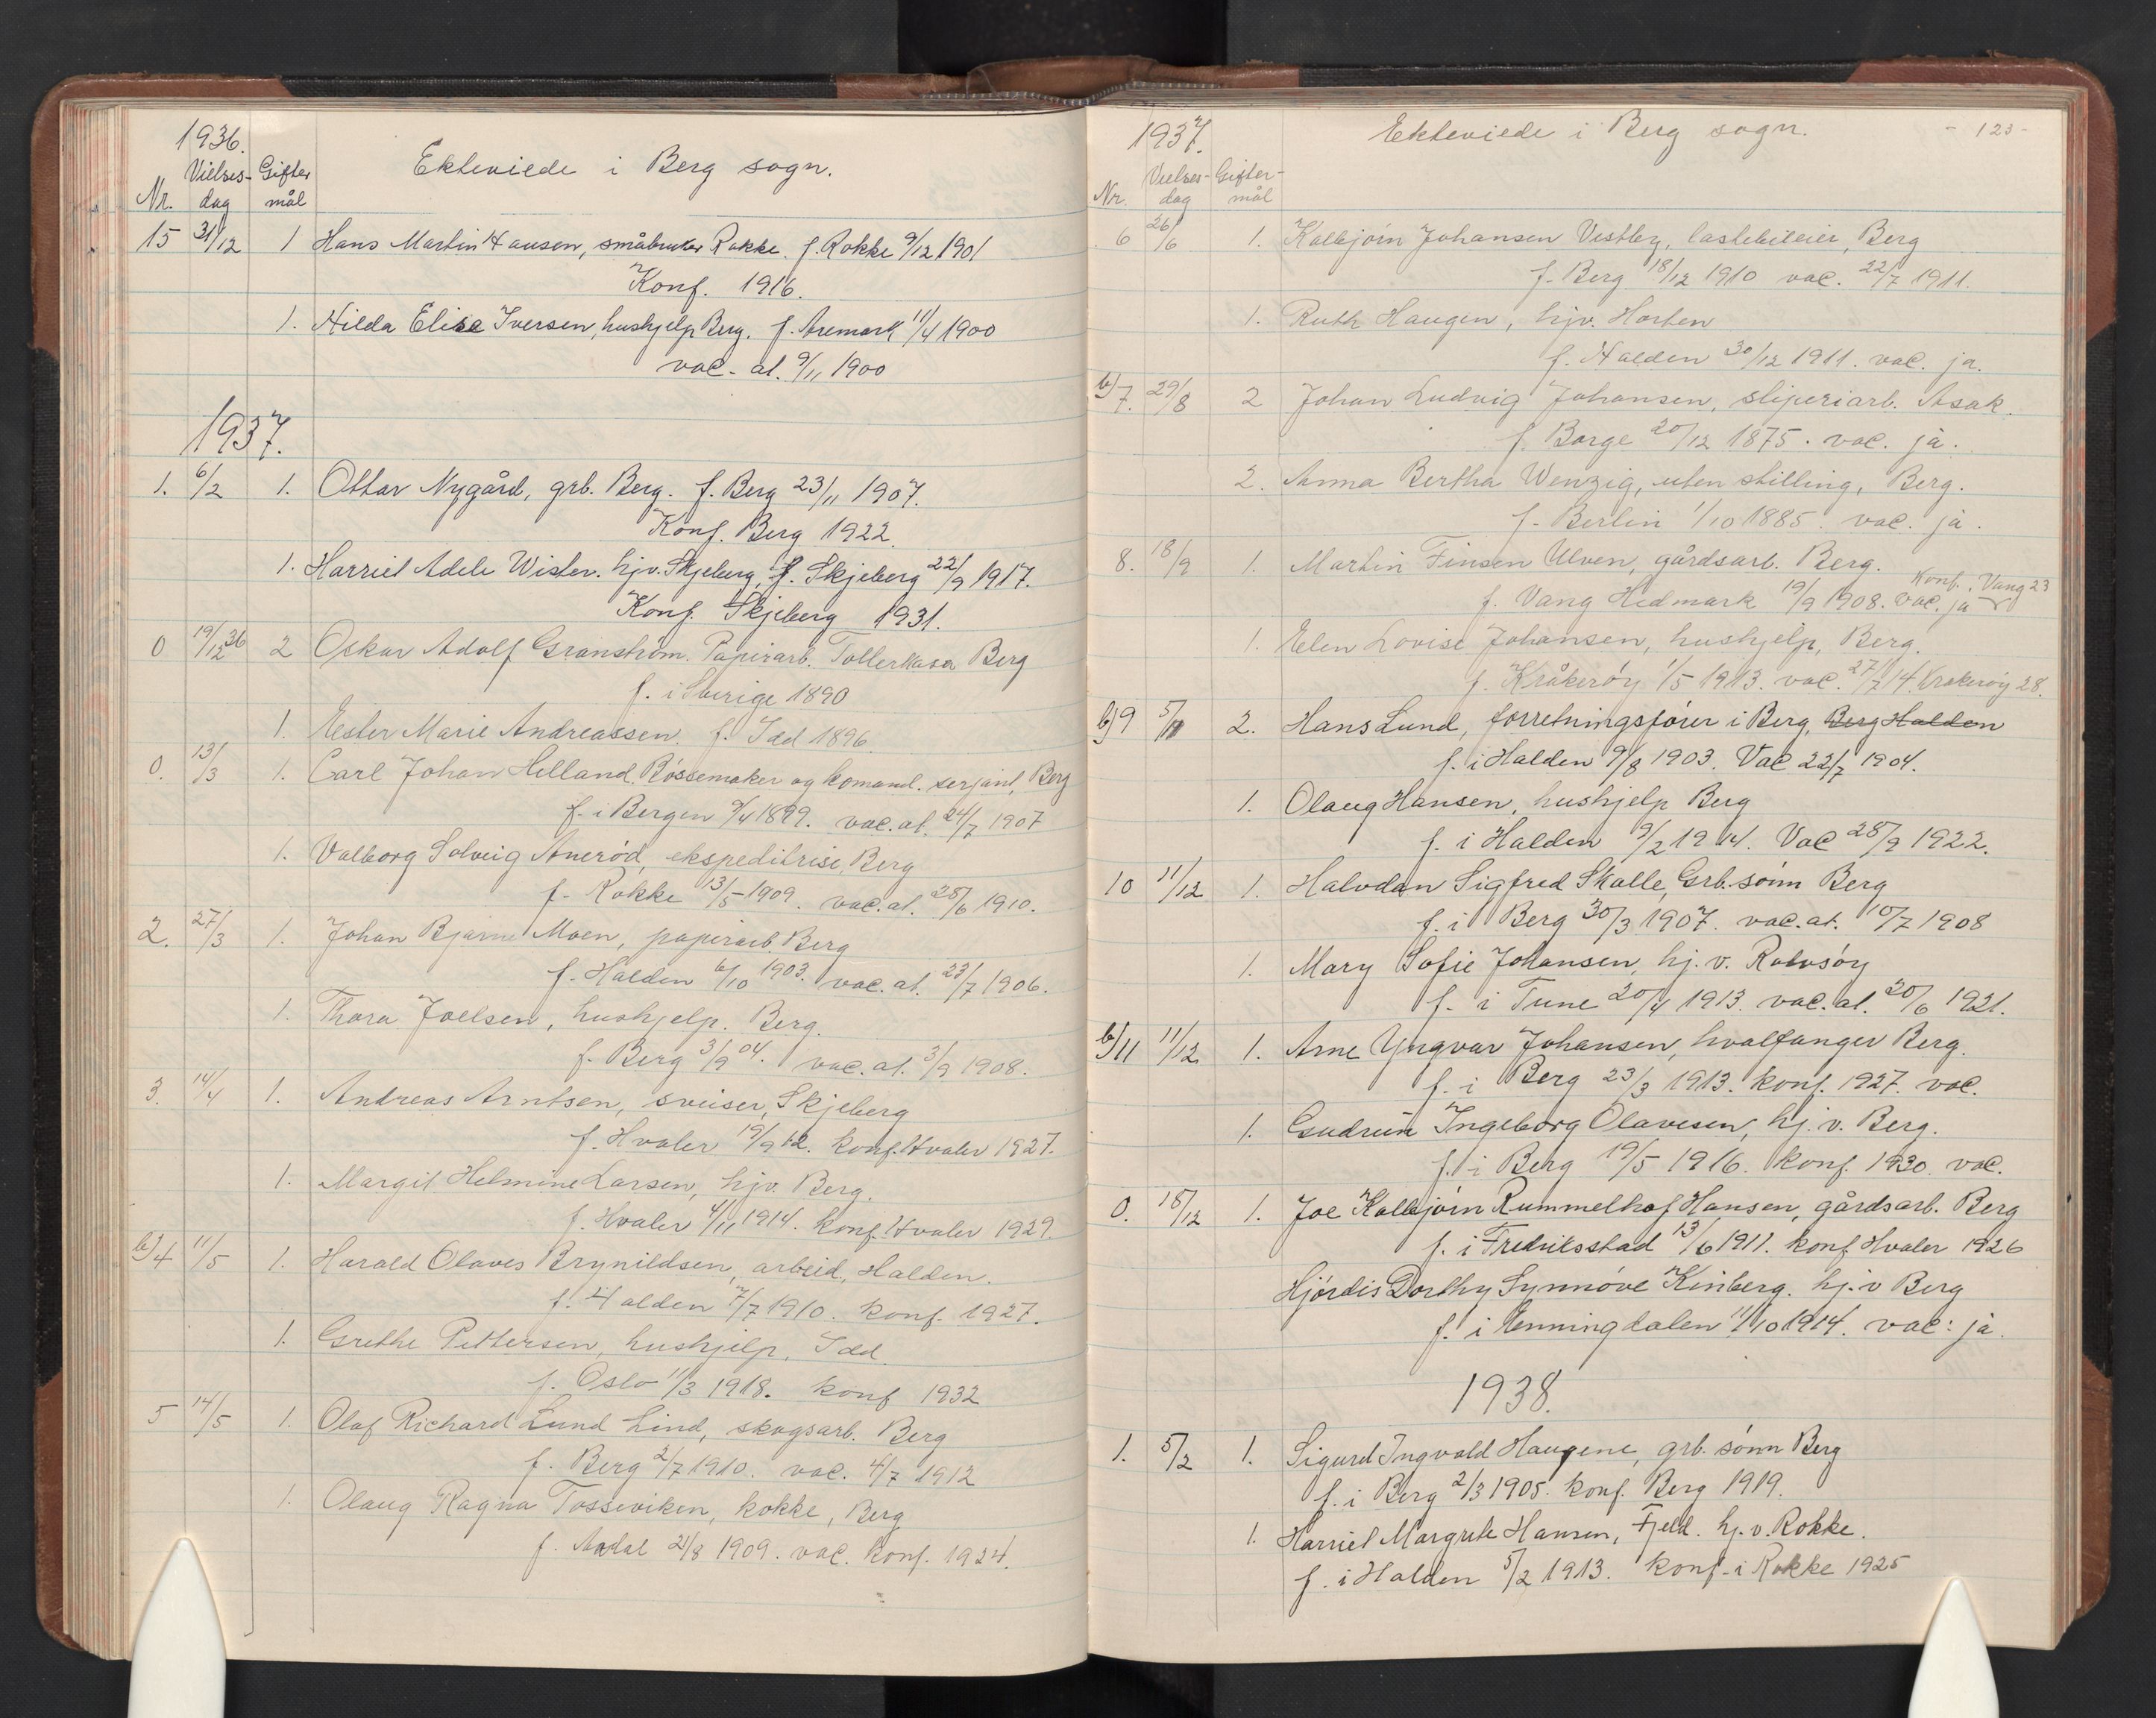 1936.
Ektevilede i Berg sogn.
Nr. Vielses-dag Gifter mål
15 31/12 1 Hans Martin Hansen, småbruker Rokke. f. Rokke 9/12 1901
Konf. 1916.
1. Hilda Elise Iversen, hushjelp Berg. f. Aremark 11/4 1900
vac. at. 9/11 1900
1937.
1. 6/2 1. Ottar Nygård, grb. Berg. f. Berg 23/11 1907.
Konf. Berg 1922.
1. Harriet Adele Wister. hjv. Skjeberg, f. Skjeberg 22/9 1917.
Konf. Skjeberg 1931.
0 19/12 36 2 Oskar Adolf Granstrøm. Papirarb. Tollerkasa Berg
f. i Sverige 1890
1. Ester Marie Andreassen. f. Idd 1896.
0. 13/3 1. Carl Johan Helland. Bøssemaker og komand. serjant, Berg
f. i Bergen 9/4 1899. vac. at. 24/7 1907
1. Valborg Solveig Anerød, ekspeditrise, Berg
f. Rokke 13/5 - 1909. vac. at. 28/6 1910.
2. 27/3 1. Johan Bjarne Moen, papirarb. Berg
f. Halden 6/10 1903. vac. at. 23/7 1906.
1. Thora Joelsen, hushjelp. Berg.
f. Berg 3/9 04. vac. at. 3/9 1908.
3. 14/4 1. Andreas Arntsen, sveiser, Skjeberg
f. Hvaler 19/9 12. konf. Hvaler 1927.
1. Margit Helmine Larsen, hjv. Berg.
f. Hvaler 4/11 1914. konf. Hvaler 1929.
b) 4 11/5 1. Harald Olaves Brynildsen, arbeid, Halden.
f. Halden 7/7 1910. konf. 1927.
1. Grethe Pettersen, hushjelp, Idd.
f. Oslo 11/3 1918. konf 1932
5 14/5 1. Olaf Richard Lund Lind, skogsarb. Berg
f. Berg 2/7 1910. vac. 4/7 1912
1. Olaug Ragna Tosseviken, kokke, Berg
f. Aadal 21/8 1909. vac. konf. 1924.
1937.
Ekteviede i Berg sogn.
- 123 -
Nr. Vielses-dag Gifter-mål
6 26/6 1. Kolbjørn Johansen Vestby, lastebileier, Berg
f. Berg 18/12 1910 vac. 22/7 1911.
1. Ruth Haugen, hjv. Horten
f. Halden 30/12 1911. vac. ja.
b) 7. 29/8 2 Johan Ludvig Johansen, sliperiarb. Asak.
f. Borge 20/12 1875. vac. ja.
2. Anna Bertha Wenzig, uten stilling, Berg.
f. Berlin 1/10 1885. vac. ja.
8. 18/9 1. Martin Finsen Ulven, gårdsarb. Berg.
Konf. Vang 23
f. Vang Hedmark 19/9 1908. vac. ja
1. Elen Lovise Johansen, hushjelp, Berg.
f. Kråkerøy 1/5 1913. vac. 27/7 14. Krakerøy 28.
b) 9 5/11 2. Hans Lund, forretningsfører i Berg, Berg Halden
f. i Halden 9/8 1903. Vac 22/7 1904.
1. Olaug Hansen, hushjelp Berg
f. i Halden 9/2 1914. Vac 28/9 1922.
10 11/12 1. Halvdan Sigfred Skolle, Grb. sønn Berg
f. i Berg 30/3 1907. vac. at. 10/7 1908
1. Mary Sofie Johansen, hj. v. Rolvsøy
f. i Tune 20/4 1913. vac. at. 20/6 1921.
b) 11 11/12 1. Arne Yngvar Johansen, hvalfanger Berg.
f. i Berg 23/3 1913. konf. 1927. vac.
1. Gudrun Ingeborg Olavesen, hj. v. Berg.
f. i Berg 19/5 1916. konf. 1930. vac.
0. 18/12 1. Joe Kolbjørn Rummelhof Hansen, gårdsarb. Berg
f. i Fredriksstad 13/6 1911. konf Hvaler 1926
Hjørdis Dorthy Synnøve Kinberg. hj. v Berg
f. i Enningdalen 11/10 1914. vac: ja.
1938.
1. 5/2 1. Sigurd Ingvald Haugene, grb. sønn Berg
f. i Berg 2/3 1905. konf. Berg 1919.
1. Harriet Margrete Hansen, Fjeld. hj. v. Rokke.
f. i Halden 5/2 1913. konf. i Rokke 1925